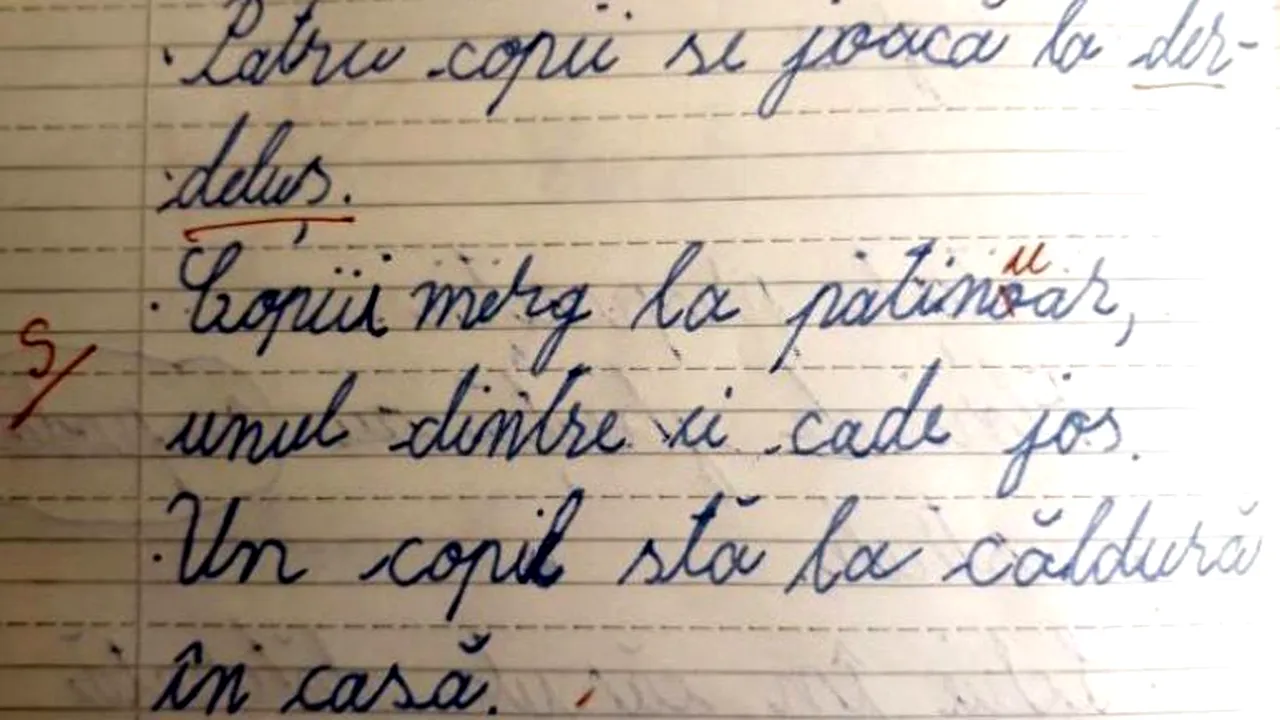 Patru copii se joacă la der-
deluș.
Copiii merg la patinoar,
u
S/
unul dintre ei cade jos.
Un copil stă la căldură
în casă.